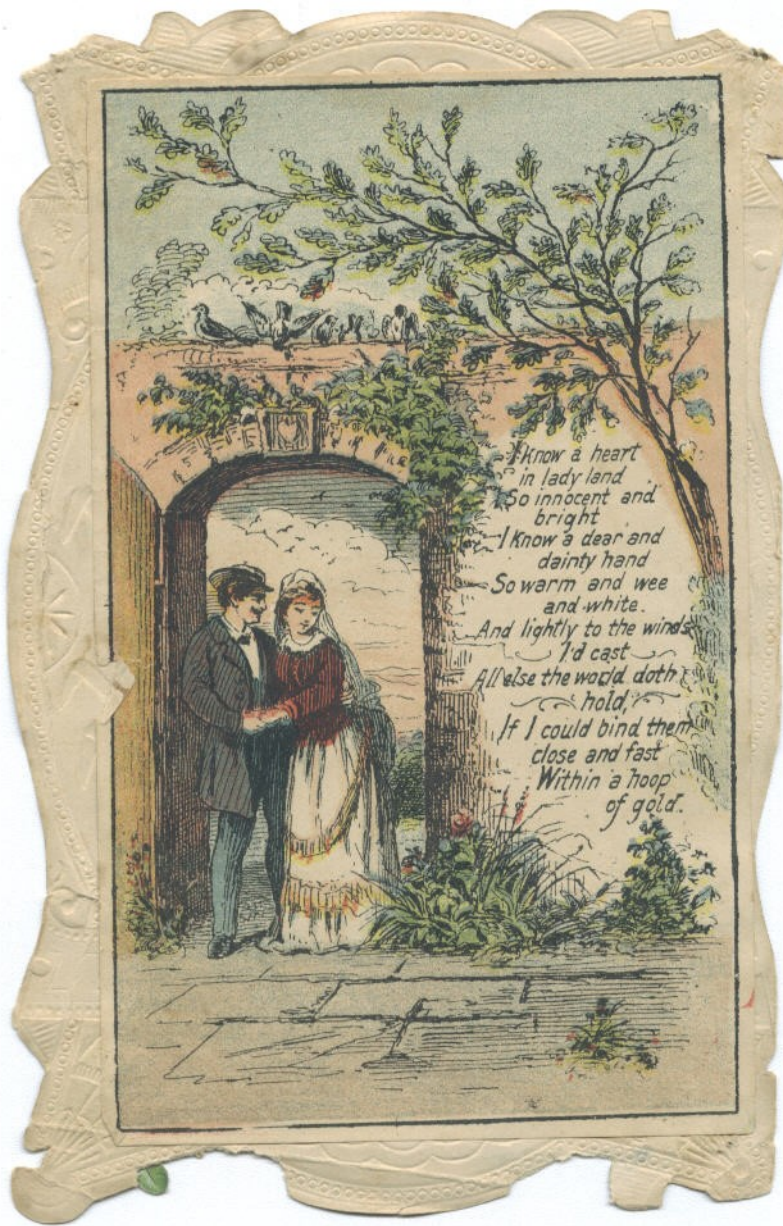 I know a heart
in lady land
So innocent and
bright
I know a dear and
dainty hand
So warm and wee
and white.
And lightly to the winds
I'd cast
All else the world doth
hold,
If I could bind them
close and fast
Within a hoop
of gold.